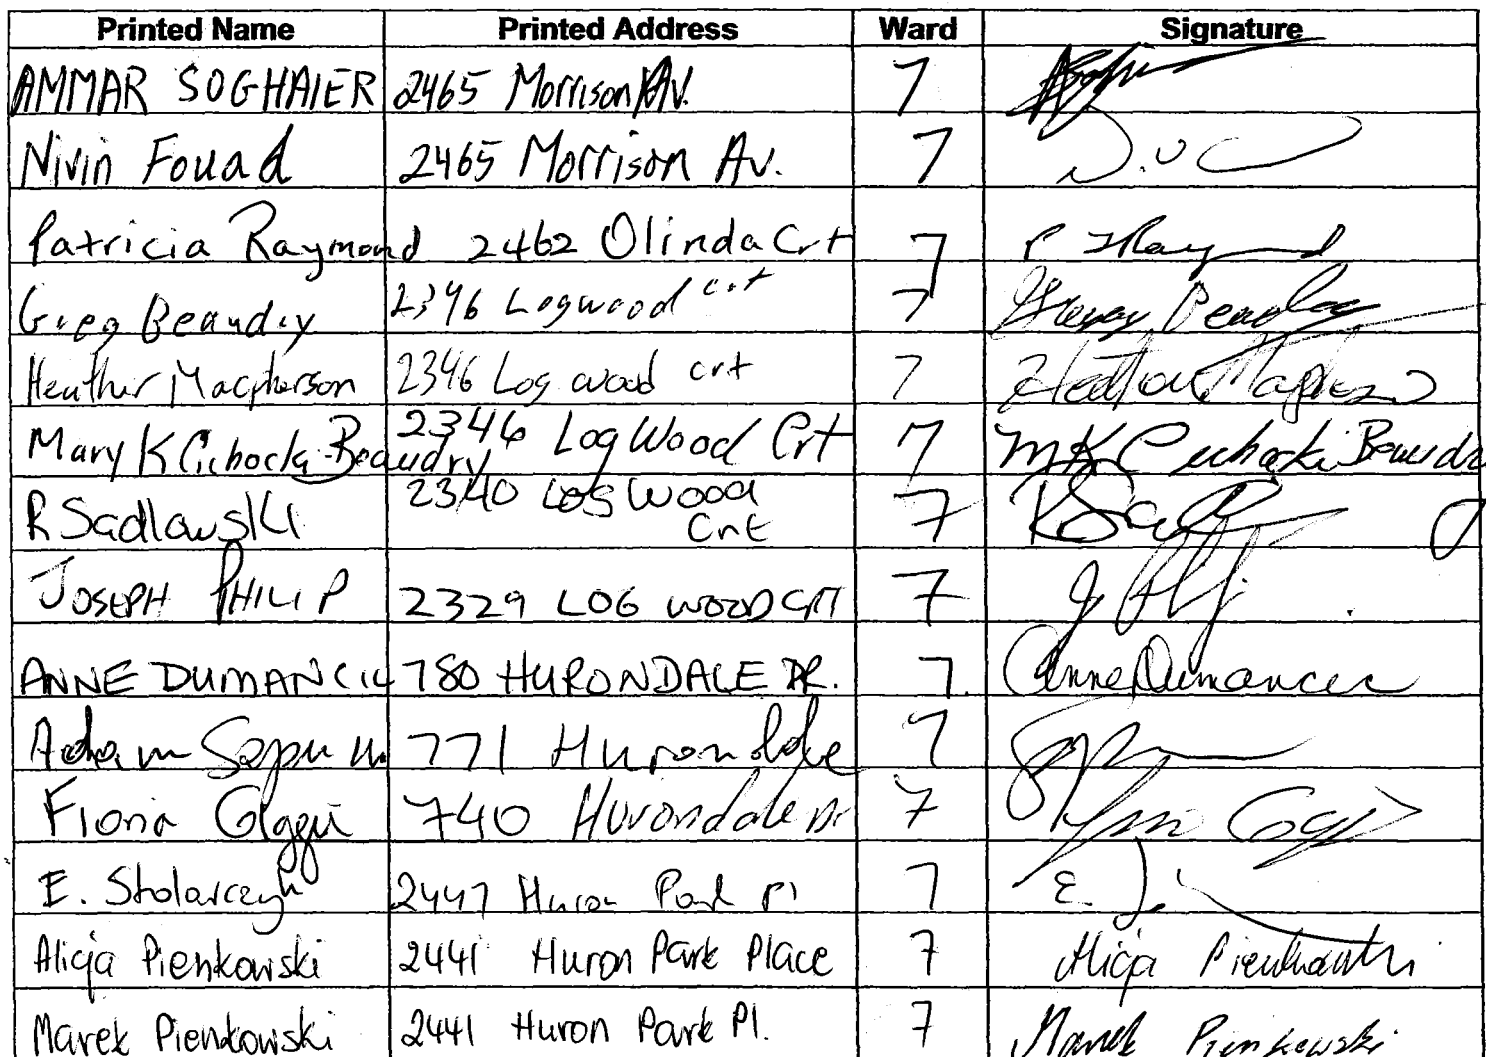 Printed Name Printed Address Ward Signature
AMMAR SOGHAIER 2465 Morrison Av. 7
Nivin Fouad 2465 Morrison Av. 7
Patricia Raymond 2462 Olinda Crt 7 P Raymond
Greg Beaudry 2346 Logwood crt 7 Beaudry
Heather Macpherson 2346 Log wood crt 7 Heather
Mary K Cichocki-Beaudry 2346 Log Wood Crt 7 MK Cichocki Beaudry
R Sadlowski 2340 Log Wood Crt 7
JOSEPH PHILIP 2329 LOG WOOD CRT 7
ANNE DUMANCIC 780 HURONDALE DR. 7. Anne Dumancic
Adam 771 Hurondale 7
Fiona 740 Hurondale Dr 7
E. Stolarczyk 2447 Huron Park Pl 7 E
Alicja Pienkowski 2441 Huron Park Place 7 Alicja Pienkowski
Marek Pienkowski 2441 Huron Park Pl. 7 Marek Pienkowski